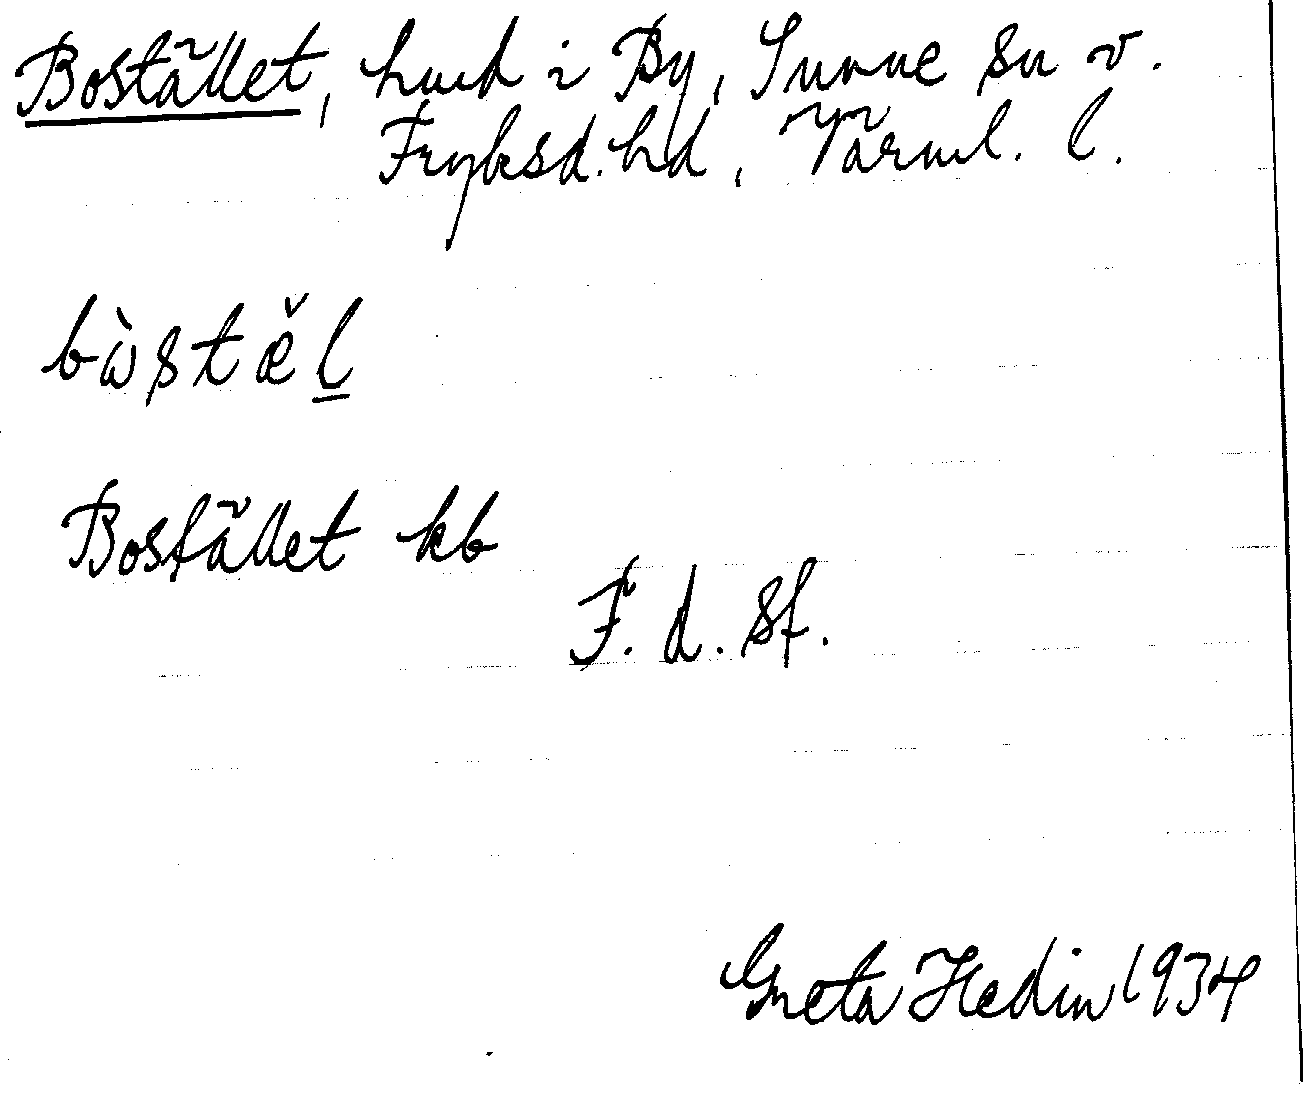 Bostället, hmd i By, Sunne sn v.
Fryksd. hd, Värml. l.
bὼstæ̌l̲
Bostället kb
F. d. sf.
Greta Hedin 1934